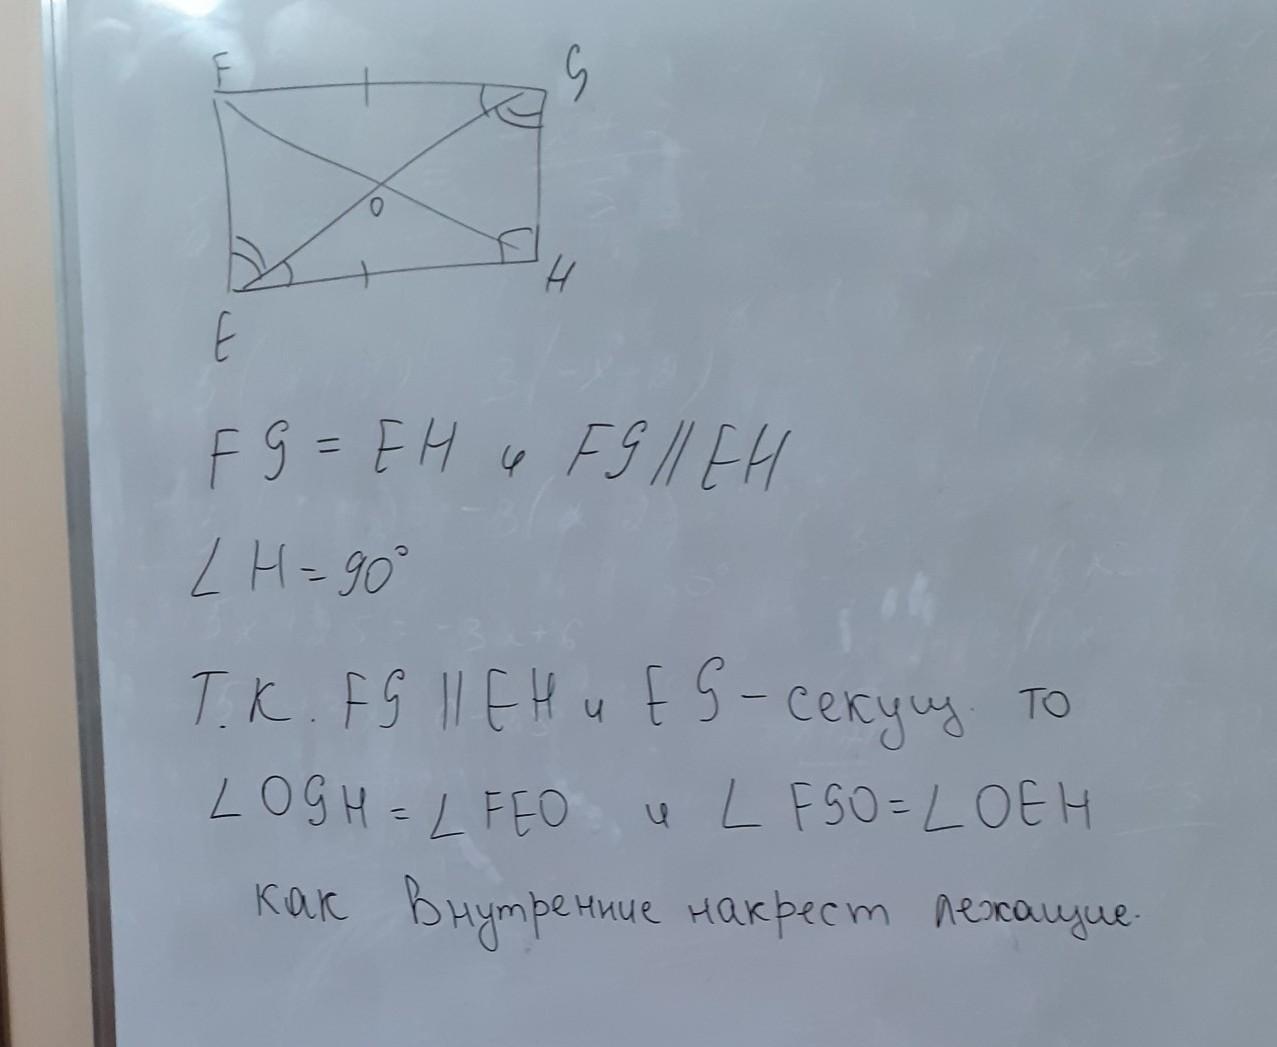 F G
O
E H
FG = EH и FG || EH
∠H = 90°
Т.К. FG || EH и EG - секущ. то
∠OGH = ∠FEO и ∠FGO = ∠OEH
как внутренние накрест лежащие.